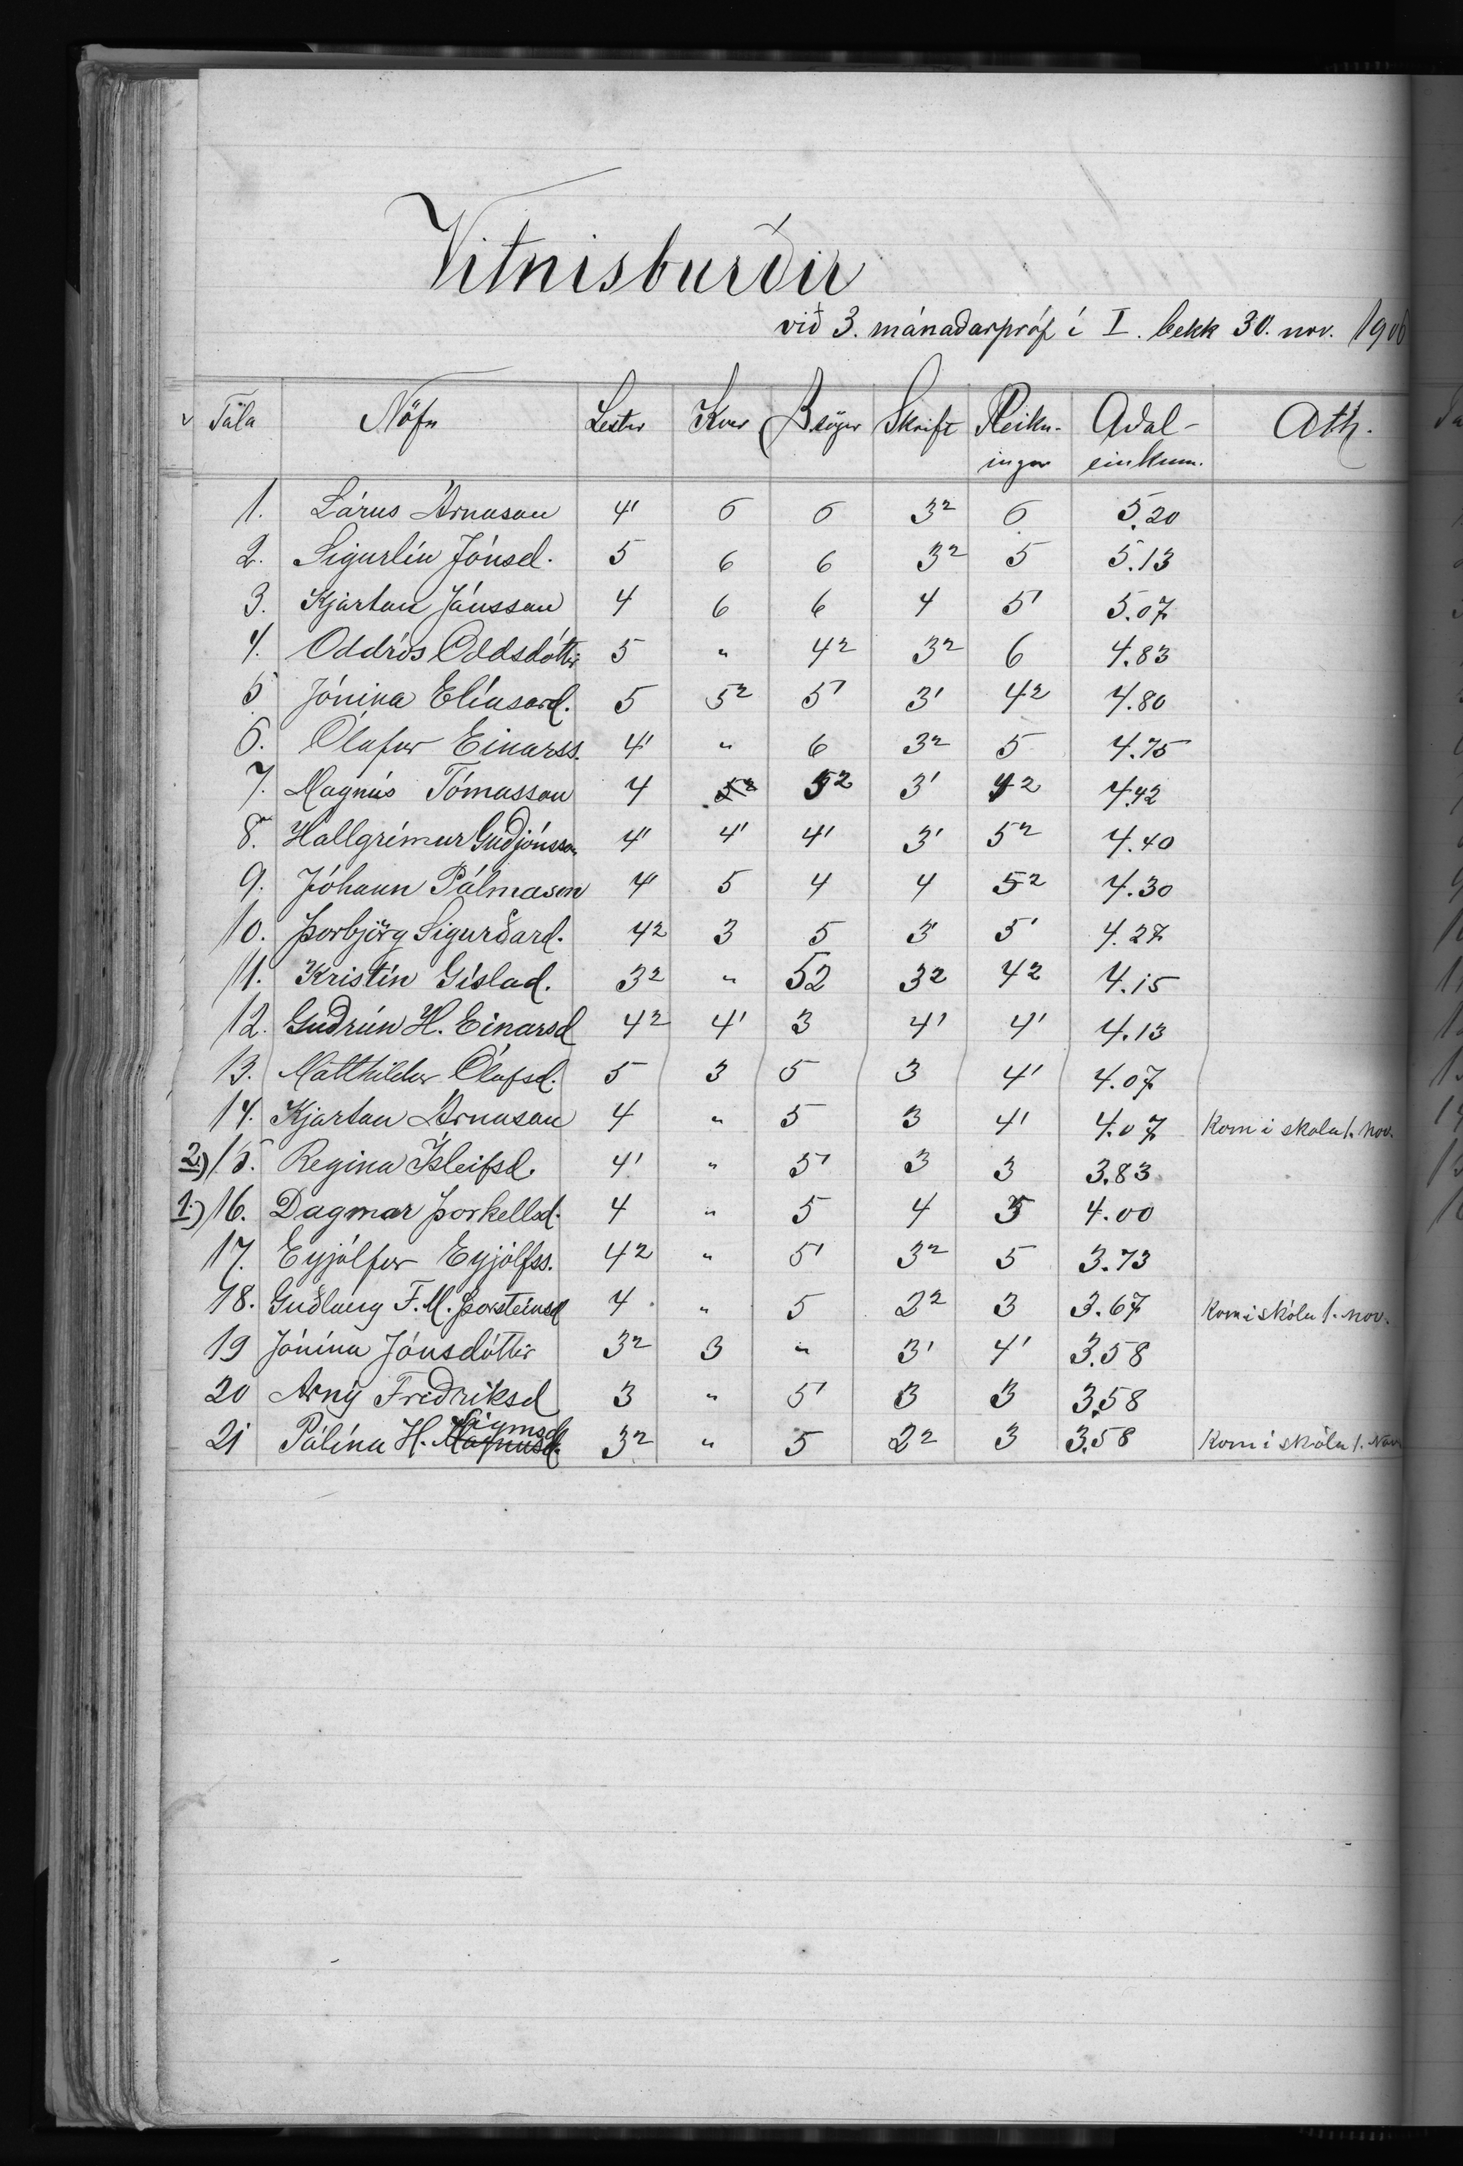 Vitnisburðir
við 3. mánaðarpróf í I. bekk 30. nov. 1906
Tala Nöfn Lestur Kver B.sögur Skrift Reikn- Aðal- Ath.
ingur einkunn.
1. Lárus Árnason 4' 6 6 3² 6 5.20
2. Sigurlín Jónsd. 5 6 6 3² 5 5.13
3. Kjartan Jónsson 4 6 6 4 5' 5.07
4. Oddrós Oddsdóttir 5 " 4² 3² 6 4.83
5 Jónína Elíasard. 5 5² 5' 3' 4² 4.80
6. Ólafur Einarss. 4' " 6 3² 5 4.75
7. Magnús Tómasson 4 5² 5² 3' 4² 4.42
8. Hallgrímur Guðjónsson 4' 4' 4' 3' 5² 4.40
9. Jóhann Pálmason 4' 5 4 4 5² 4.30
10. Þorbjörg Sigurðard. 4² 3 5 3' 5' 4.27
11. Kristín Gíslad. 3² " 5² 3² 4² 4.15
12. Guðrún H. Einarsd 4² 4' 3 4' 4' 4.13
13. Matthildur Ólafsd. 5 3 5 3 4' 4.07
14. Kjartan Árnason 4 " 5 3 4' 4.07 Kom í skóla 1. nov.
2.) 15. Regina Ísleifsd. 4' " 5' 3 3 3.83
1.) 16. Dagmar Þorkellsd. 4 " 5 4 3 4.00
17. Eyjólfur Eyjólfss. 4² " 5' 3² 5 3.73
18. Guðlaug F. M. Þorsteinsd 4 " 5 2² 3 3.67 Kom í skóla 1. nov.
19 Jónína Jónsdóttir 3² 3 " 3' 4' 3.58
20 Arný Friðriksd 3 " 5' 3 3 3.58
21 Pálína H. Magnúsd. Sigmsd 3² " 5 2² 3 3.58 Kom í skóla 1. Nov